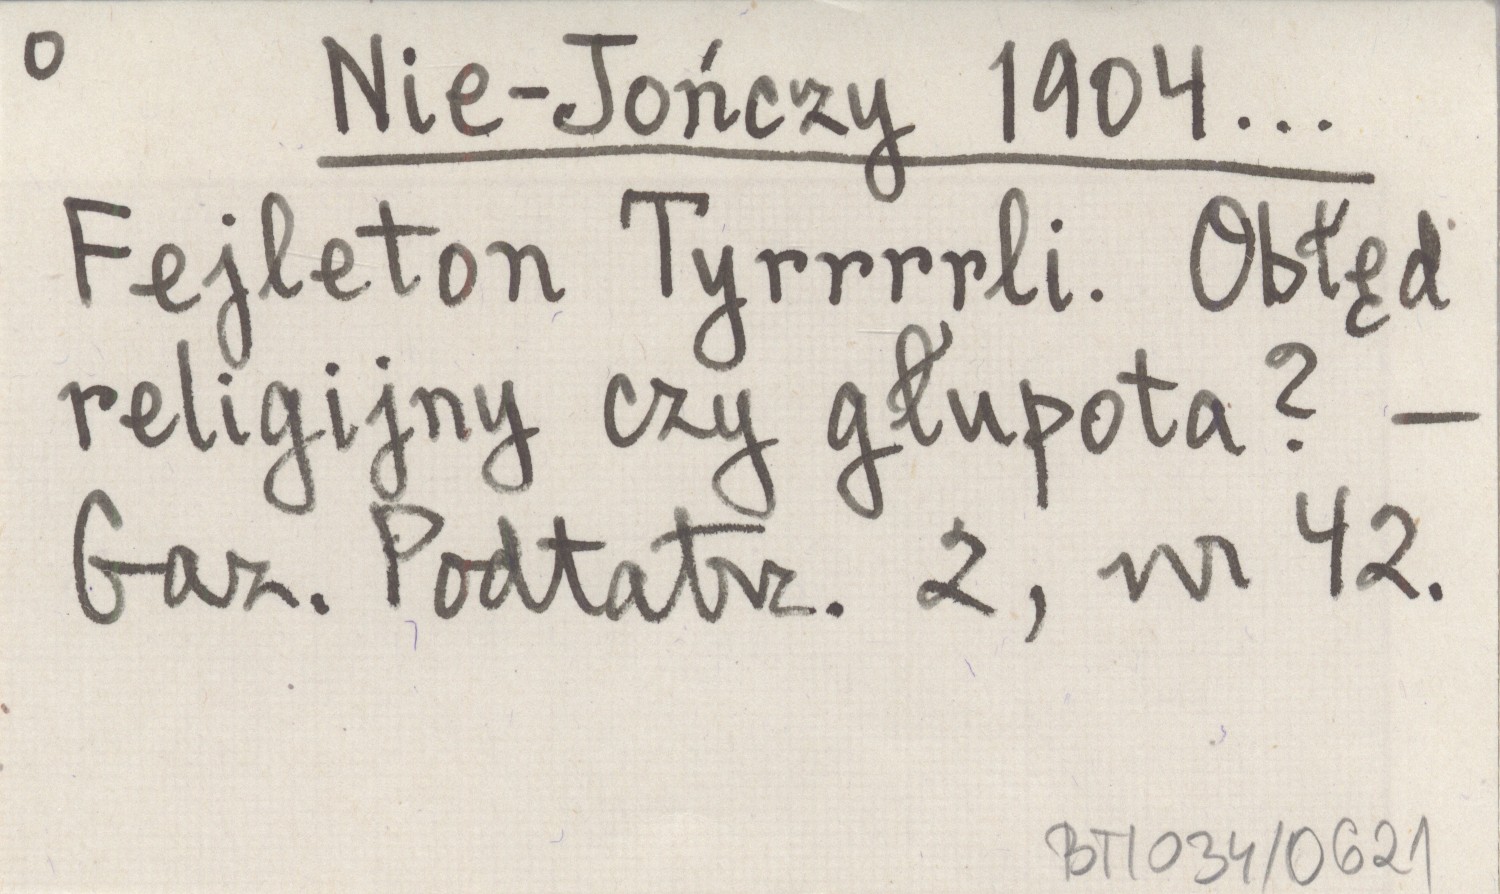 o
Nie-Jończy 1904...
Fejleton Tyrrrrrli. Obłęd
religijny czy głupota? –
Gaz. Podtatrz. 2, nr 42.
BTI034/0621